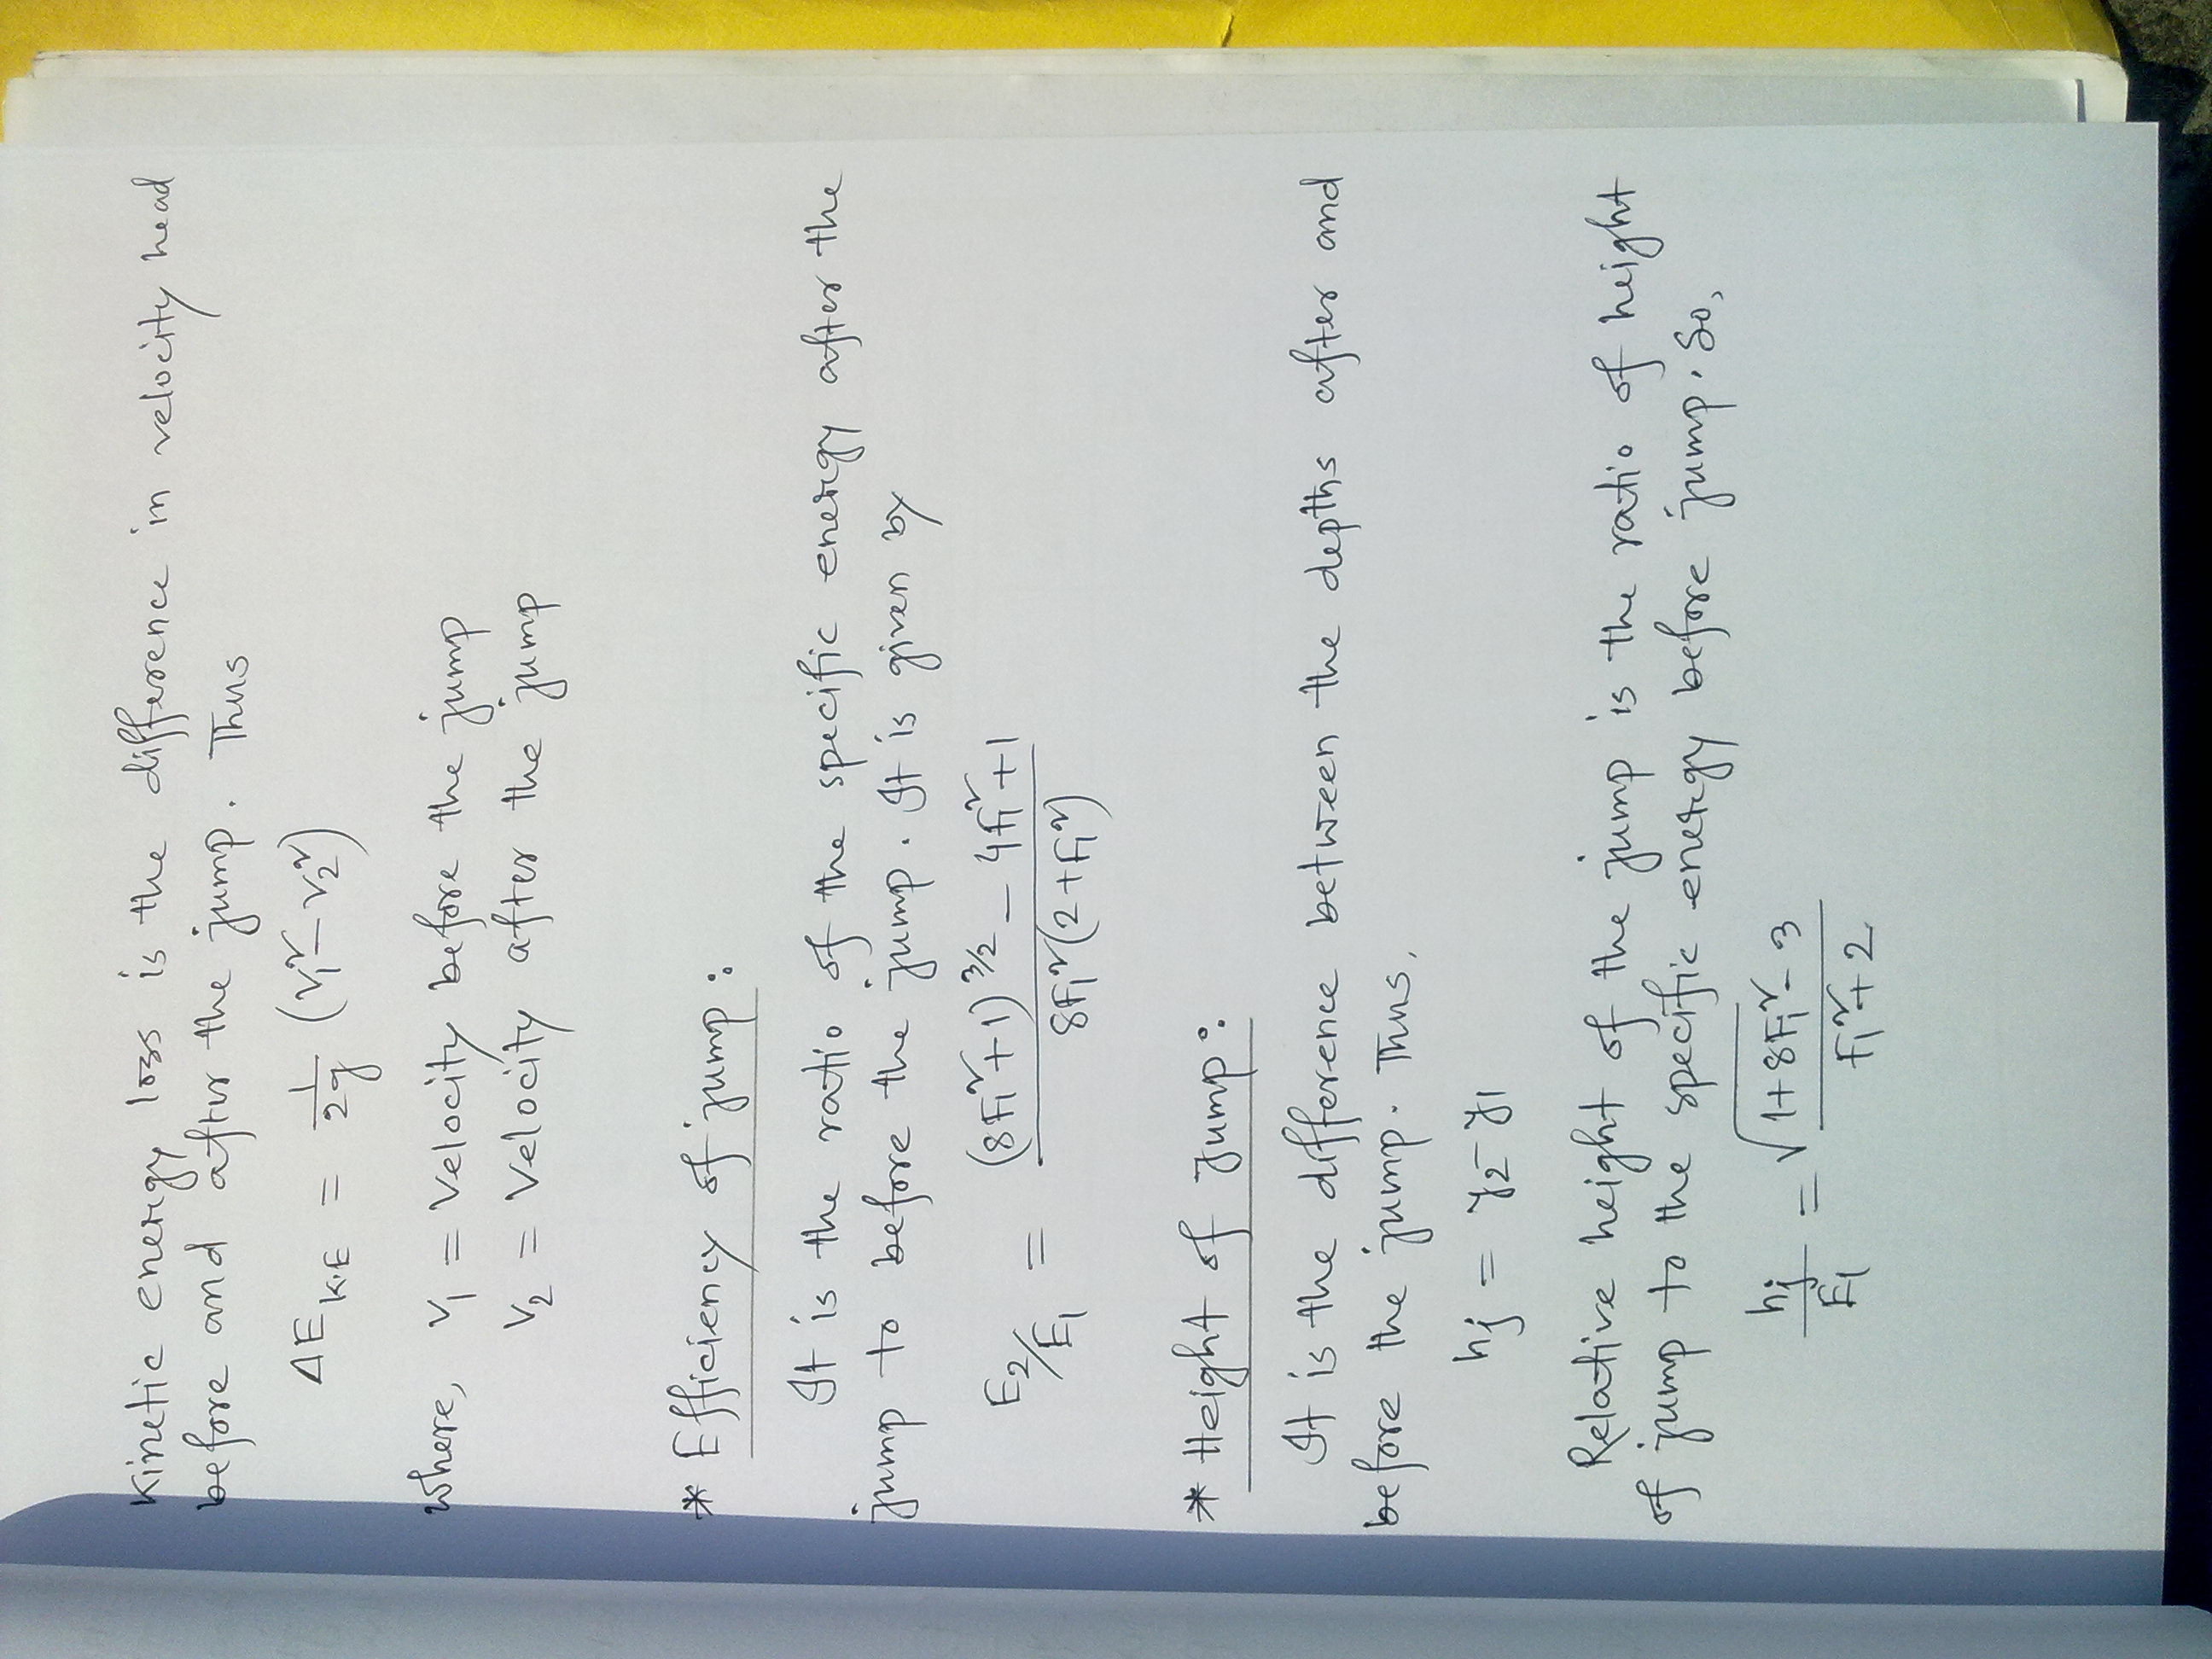 Kinetic energy loss is the difference in velocity head
before and after the jump. Thus
ΔE_K.E = 1/2g (V₁² - V₂²)
Where, V₁ = Velocity before the jump
V₂ = Velocity after the jump
* Efficiency of jump:
It is the ratio of the specific energy after the
jump to before the jump. It is given by
E₂/E₁ = ((8F₁²+1)^3/2 - 4F₁²+1)/(8F₁²(2+F₁²))
* Height of jump:
It is the difference between the depths after and
before the jump. Thus,
hj = y₂ - y₁
Relative height of the jump is the ratio of height
of jump to the specific energy before jump. So,
hj/E₁ = (√(1+8F₁²) - 3)/(F₁²+2)